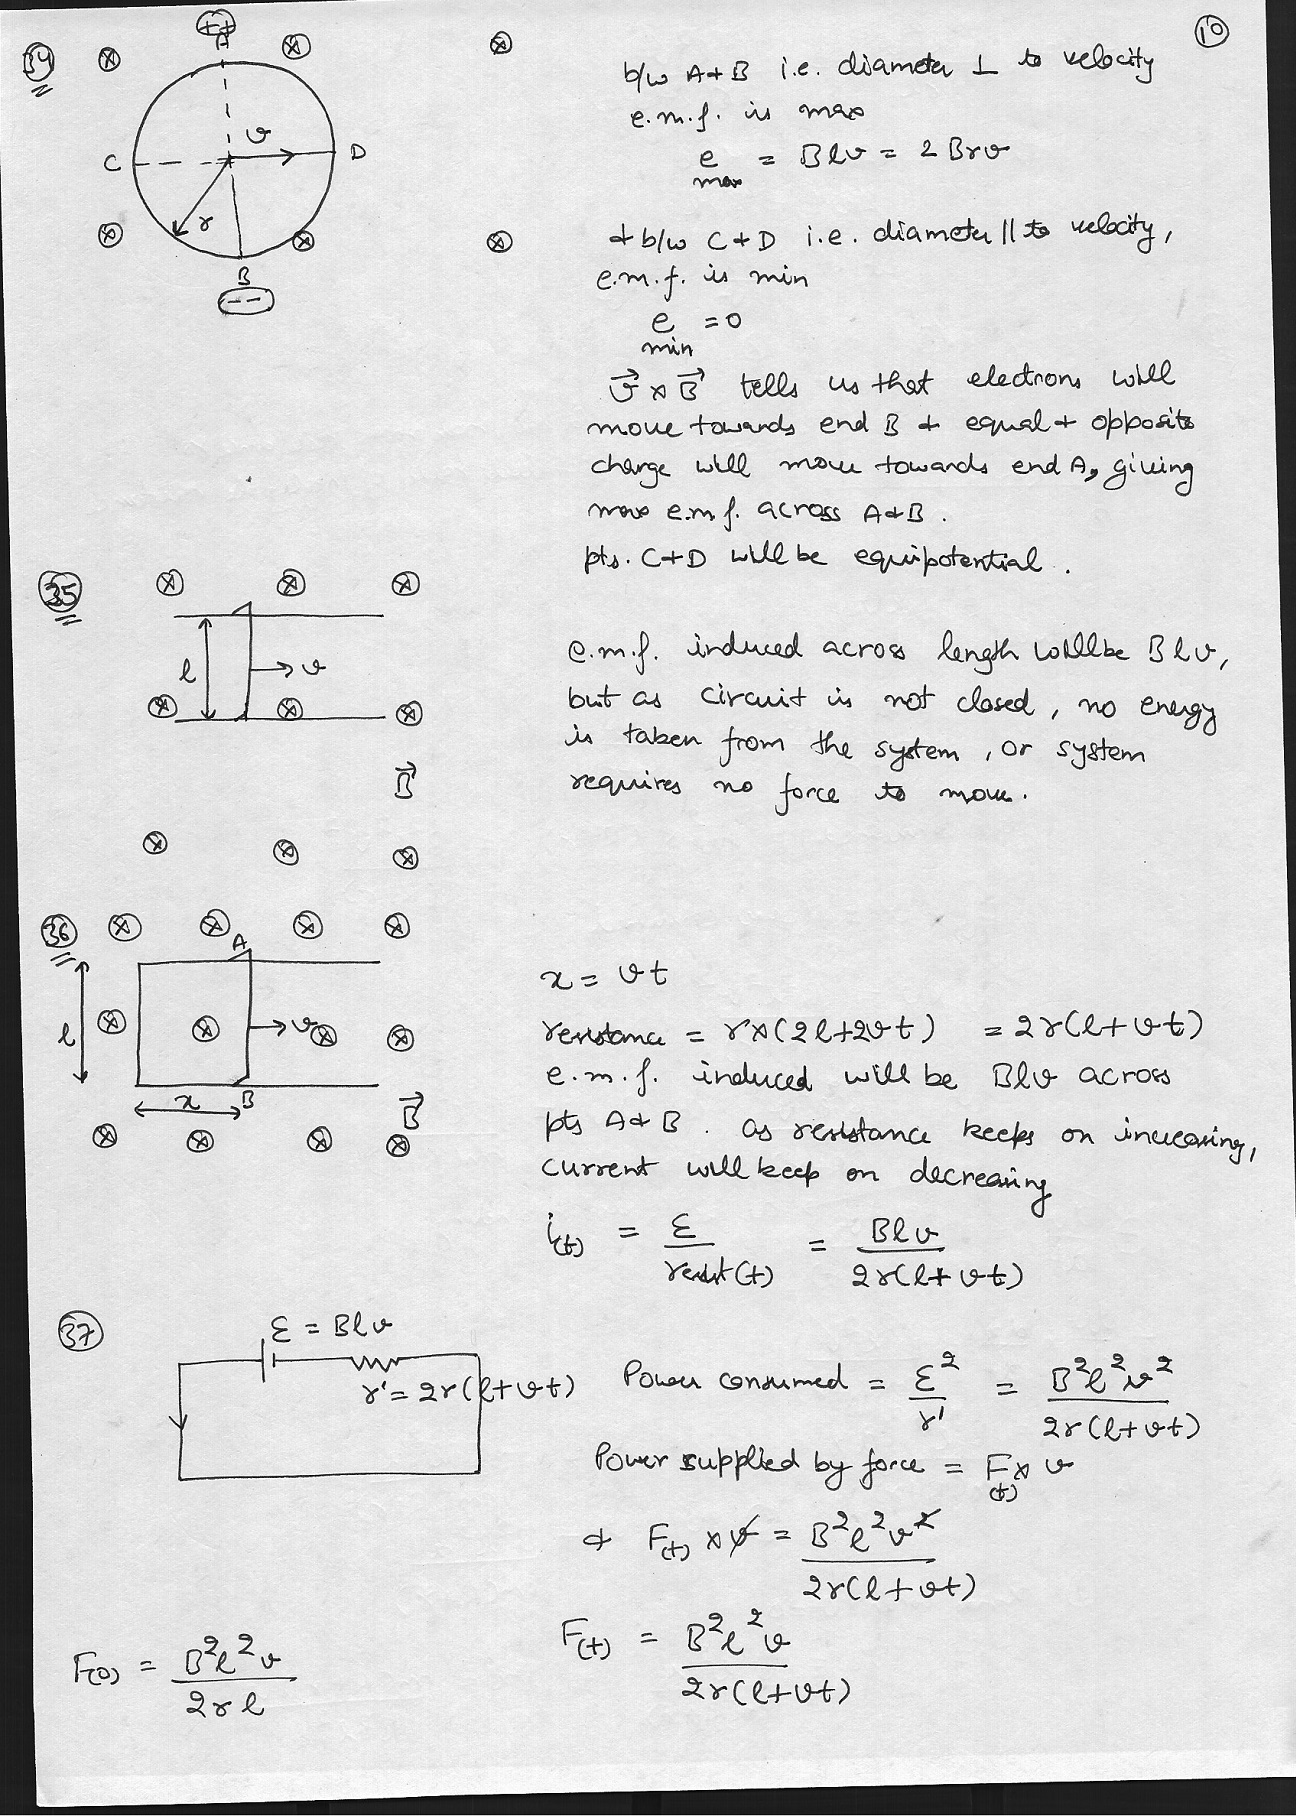 10
34
++
A
v
C
D
r
B
--
b/w A & B i.e. diameter ⊥ to velocity
e.m.f. is max
e max = Blv = 2Brv
& b/w C & D i.e. diameter || to velocity,
e.m.f. is min
e min = 0
v⃗ × B⃗ tells us that electrons will
move towards end B & equal & opposite
charge will move towards end A, giving
max e.m.f. across A & B.
pts. C & D will be equipotential.
35
l
v
B⃗
e.m.f. induced across length will be Blv,
but as circuit is not closed, no energy
is taken from the system, or system
requires no force to move.
36
A
l
v
x
B
B⃗
x = vt
resistance = r×(2l+2vt) = 2r(l+vt)
e.m.f. induced will be Blv across
pts A & B. as resistance keeps on increasing,
current will keep on decreasing
i(t) = ε / resist(t) = Blv / 2r(l+vt)
37
ε = Blv
r' = 2r(l+vt)
Power consumed = ε² / r' = B²l²v² / 2r(l+vt)
Power supplied by force = F(t) × v
& F(t) × v = B²l²v² / 2r(l+vt)
F(t) = B²l²v / 2r(l+vt)
F(0) = B²l²v / 2rl